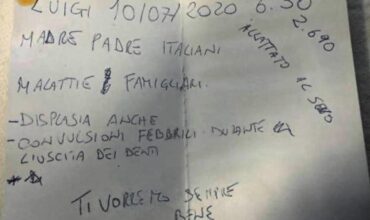 LUIGI 10/07/2020 6.30
2.690
ALLATTATO AL SENO
MADRE PADRE ITALIANI
MALATTIE FAMIGLIARI.
- DISPLASIA ANCHE
- CONVULSIONI FEBBRILI DURANTE
L'USCITA DEI DENTI
TI VORREMO SEMPRE
BENE